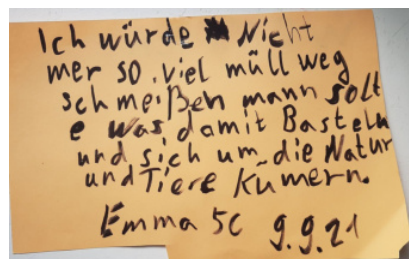 Ich würde Nicht
mer so viel müll weg
schmeißen mann sollt
e was damit Basteln
und sich um die Natur
und Tiere Kümern.
Emma 5c 9.9.21